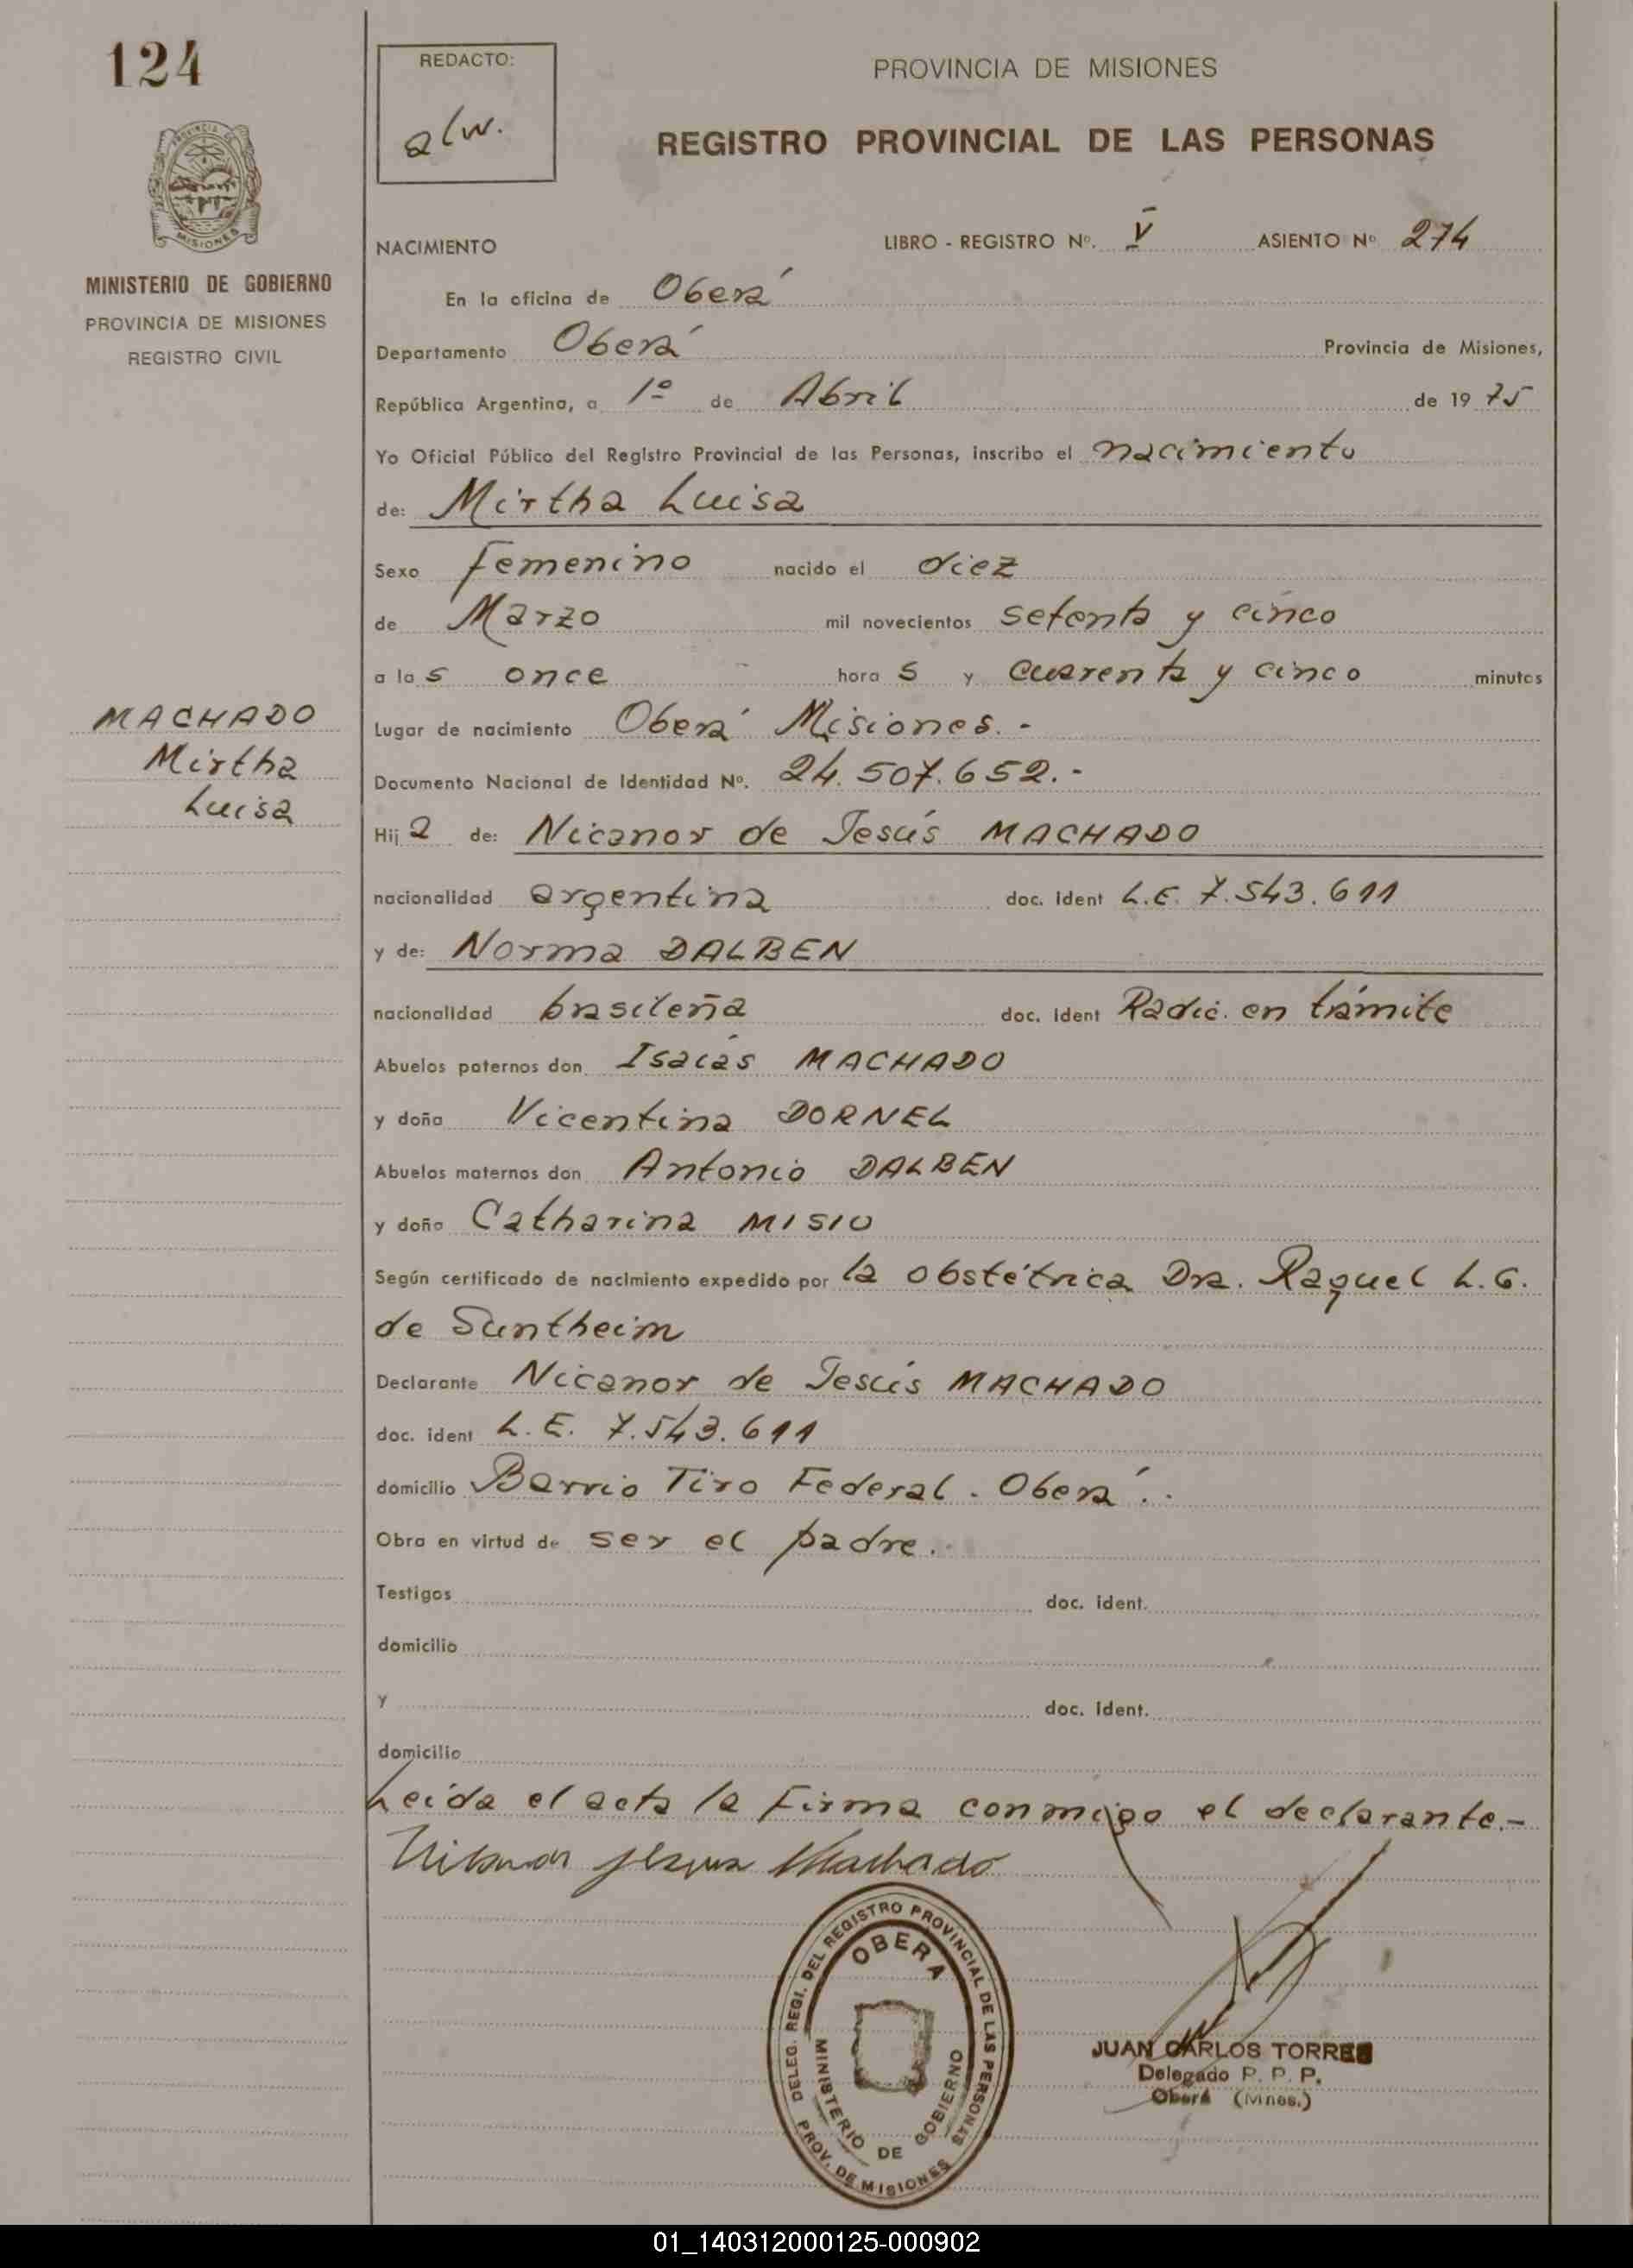 124
REDACTO:
alw.
PROVINCIA DE MISIONES
REGISTRO PROVINCIAL DE LAS PERSONAS
PROVINCIA DE
MISIONES
MINISTERIO DE GOBIERNO
PROVINCIA DE MISIONES
REGISTRO CIVIL
NACIMIENTO LIBRO - REGISTRO Nº. V ASIENTO Nº 274
En la oficina de Oberá
Departamento Oberá Provincia de Misiones,
República Argentina, a 1º de Abril de 1975
Yo Oficial Público del Registro Provincial de las Personas, inscribo el nacimiento
de: Mirtha Luisa
Sexo femenino nacido el diez
de Marzo mil novecientos setenta y cinco
a las once horas y cuarenta y cinco minutos
Lugar de nacimiento Oberá Misiones.-
MACHADO
Mirtha
Luisa
Documento Nacional de Identidad Nº. 24.507.652.-
Hija de: Nicanor de Jesús MACHADO
nacionalidad argentina doc. ident L.E. 7.543.611
y de: Norma DALBEN
nacionalidad brasileña doc. ident Radic. en trámite
Abuelos paternos don Isaías MACHADO
y doña Vicentina DORNEL
Abuelos maternos don Antonio DALBEN
y doña Catharina MISIO
Según certificado de nacimiento expedido por la obstétrica Dra. Raquel L.G.
de Suntheim
Declarante Nicanor de Jesús MACHADO
doc. ident L.E. 7.543.611
domicilio Barrio Tiro Federal - Oberá.-
Obra en virtud de ser el padre.
Testigos doc. ident.
domicilio
y doc. ident.
domicilio
Leída el acta la firma conmigo el declarante.-
Nicanor Jesus Machado
DELEG. REGI. DEL REGISTRO PROVINCIAL DE LAS PERSONAS
OBERA
MINISTERIO DE GOBIERNO
PROV. DE MISIONES
JUAN CARLOS TORRES
Delegado P. P. P.
Oberá (Mnes.)
01_140312000125-000902